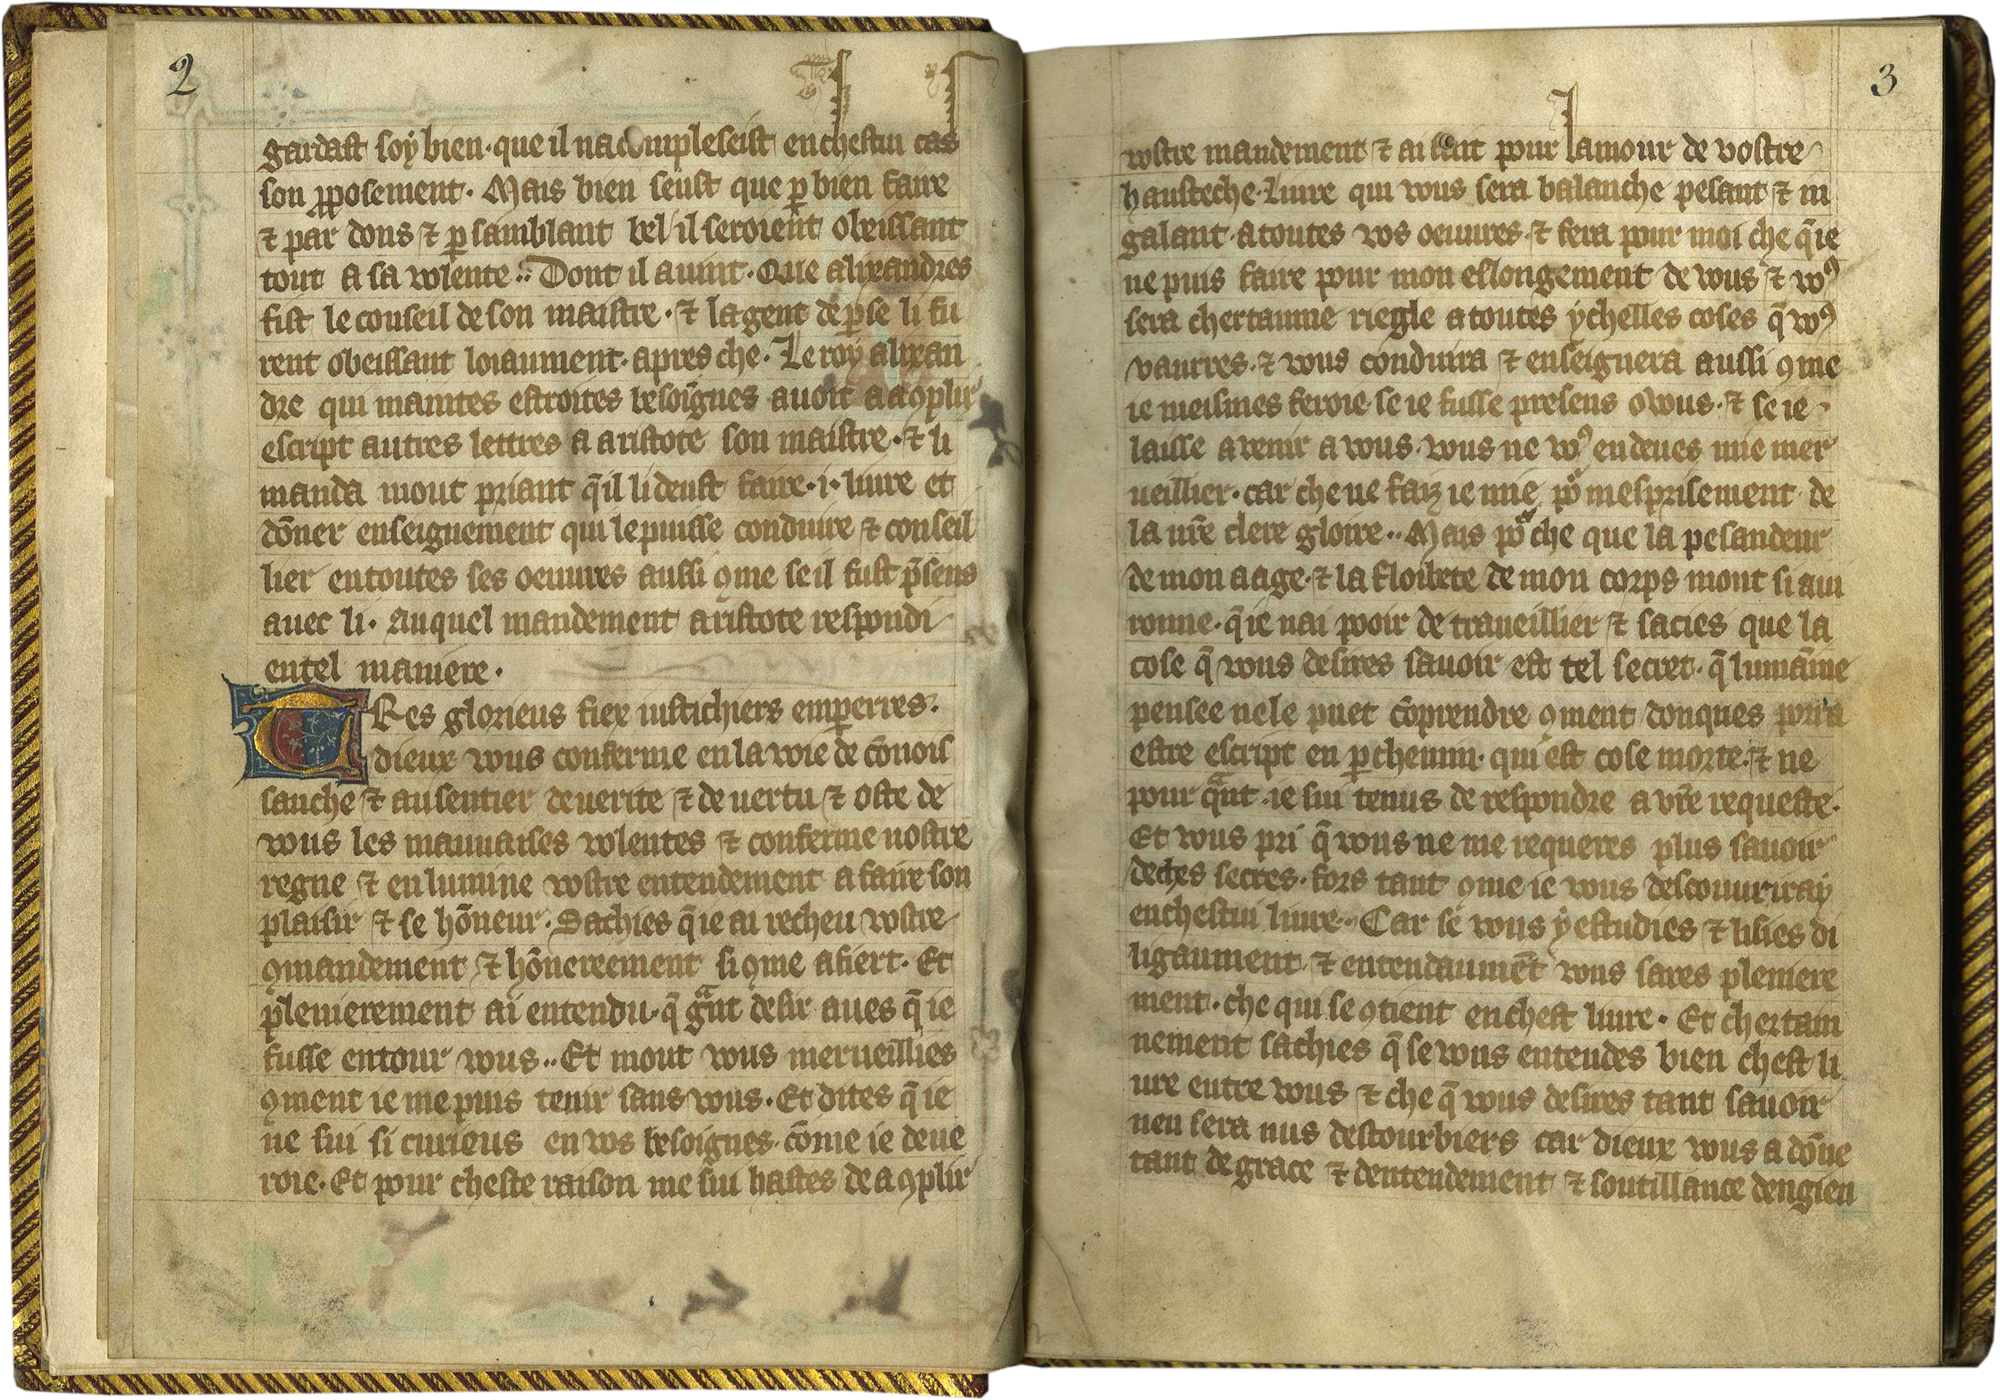 2
gardast soy bien · que il nacompleseist en chestui cas
son ꝓposement · Mais bien seust que ꝑ bien faire
⁊ par dons ⁊ ꝑ samblant bel il seroient obeissant
tout a sa volente ·: Dont il auint · Que alixandres
fist le conseil de son maistre · ⁊ la gent de ꝑse li fu
rent obeissant loiaument · apres che · Le roy alixan
dre qui maintes estroites besoi̅gnes auoit a aꝯplir
escript autres lettres a aristote son maistre · ⁊ li
manda mout priant q̃ il li deust faire · i · liure et
do̅ner enseignement qui le puisse conduire ⁊ conseil
lier en toutes ses oeuures aussi ꝯme se il fust p̃sens
auec li · Auquel mandement aristote respondi
en tel maniere ·
TRes glorieus fiex iustichiers emꝑerres ·
dieux vous conferme en la voie de co̅nois
sanche ⁊ au sentier de uerite ⁊ de uertu ⁊ oste de
vous les mauuaises volentes ⁊ conferme uostre
regne ⁊ en lumine vostre entendement a faire son
plaisir ⁊ se ho̅neur · Sachies q̃ ie ai recheu vostre
ꝯmandement ⁊ ho̅nereement si ꝯme afiert · Et
plenierement ai entendu · q̃ gᵃnt desir aues q̃ ie
fusse entour vous ·· Et mout vous merueillies
ꝯment ie me puis tenir sans vous · Et dites q̃ ie
ne sui si curieus en vos besoignes · co̅me ie deue
roie · Et pour cheste raison me sui hastes de aꝯplir
3
vostre mandement ⁊ ai fait pour lamour de vostre
hautesche · Liure qui vous sera balanche pesant ⁊ in
galant · a toutes vos oeuures · ⁊ fera pour moi che q̃ ie
ne puis faire pour mon eslongement de vous ⁊ voꝰ
sera chertainne riegle a toutes ychelles coses q̃ voꝰ
vaurres · ⁊ vous conduira ⁊ enseignera aussi ꝯme
ie meismes feroie se ie fusse presens o vous · ⁊ se ie ·
laisse a venir a vous · vous ne voꝰ en deues mie mer
ueillier · car che ne faiz ie mie po᷑ mesprisement · de
la ur̃e clere gloire ·· Mais po᷑ che que la pesandeur
de mon aage · ⁊ la floibete de mon corps mont si aui
ronne · q̃ ie nai pooir de traueillier ⁊ sacies que la
cose q̃ vous desires sauoir est tel secret · q̃ lumainne
pensee ne le puet co̅prendre ꝯment donques porra
estre escript en ꝑchemin · qui est cose morte · ⁊ ne
pour qᵃnt · ie sui tenus de respondre a vr̃e requeste ·
Et vous pri q̃ vous ne me requeres plus sauoir
de ches secres · fors tant ꝯme ie vous descouuriray
en chestui liure ·· Car se vous y estudies ⁊ lisies di
ligaument ⁊ entendaume̅t vous sares pleniere
ment · che qui se ꝯtient en chest liure · Et chertain
nement sachies q̃ se vous entendes bien chest li
ure entre vous ⁊ che q̃ vous desires tant sauoir
nen sera nus destourbiers car dieux vous a do̅ne
tant de grace ⁊ dentendement ⁊ soutillance dengien